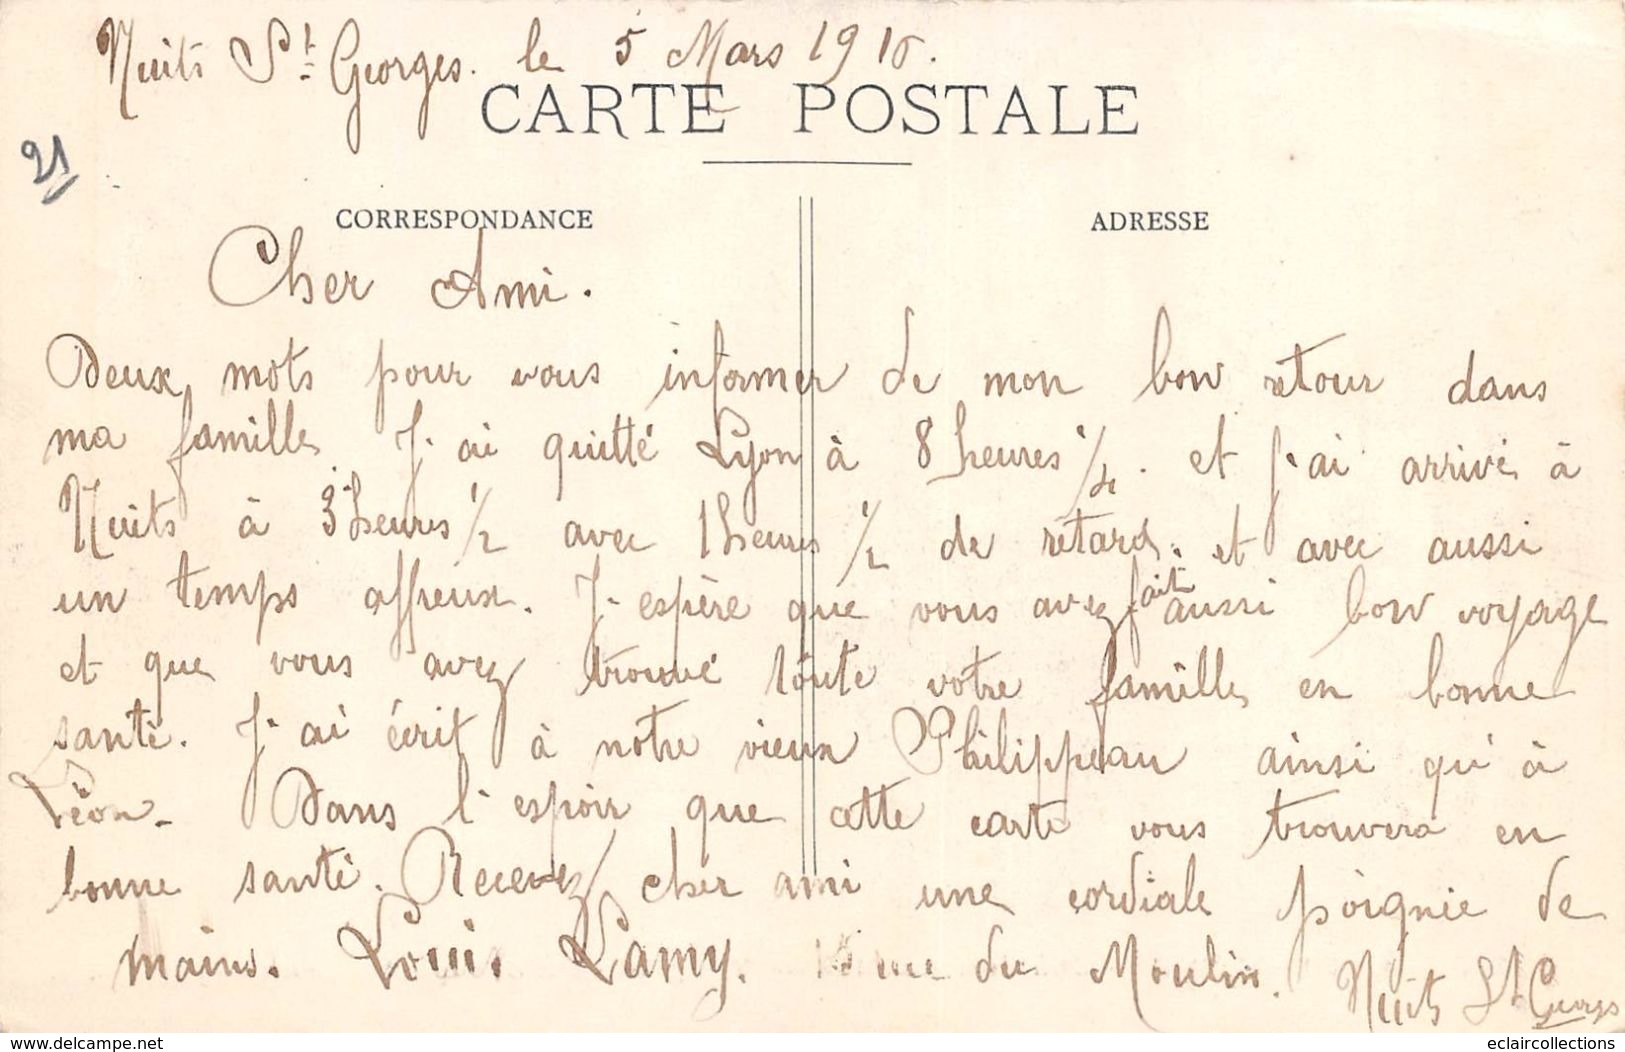 Nuits St Georges. le 5 Mars 1916.
CARTE POSTALE
21
CORRESPONDANCE
ADRESSE
Cher Ami.
Deux mots pour vous informer de mon bon retour dans
ma famille J'ai quitté Lyon à 8 heures 1/4. et j'ai arrivé à
Nuits à 3 heures 1/2 avec 1 heures 1/2 de retard. et avec aussi
un temps affreux. J'espère que vous avez fait aussi bon voyage
et que vous avez trouvé toute votre famille en bonne
santé. J'ai écrit à notre vieux Philippeau ainsi qu'à
Léon. Dans l'espoir que cette carte vous trouvera en
bonne santé. Recevez cher ami une cordiale poignée de
mains. Louis Lamy. rue du Moulin. Nuits St Georges
eclaircollections